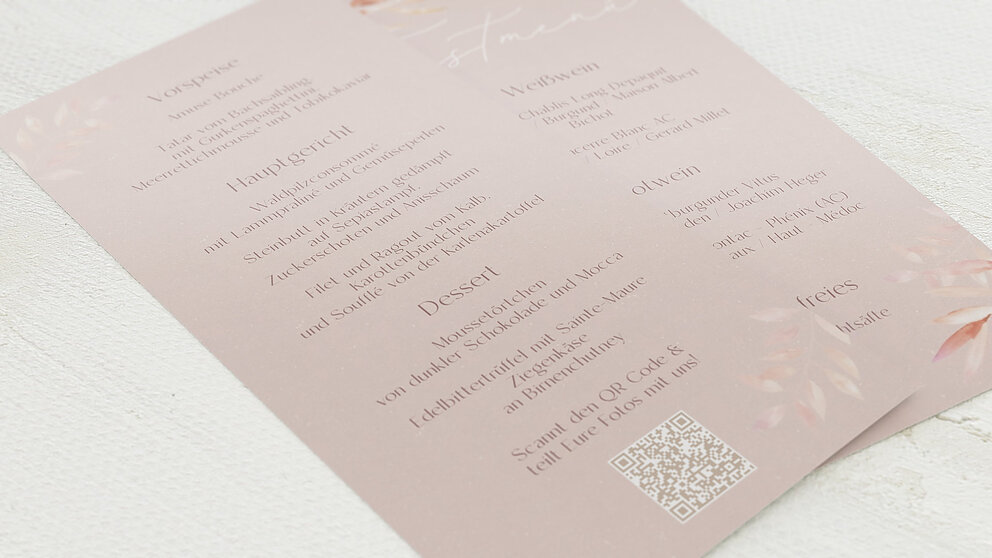 Vorspeise
Amuse Bouche
Tatar vom Bachsaibling
mit Gurkenspaghettini,
Meerrettichmousse und Tobikokaviar
Hauptgericht
Waldpilzconsommé
mit Lammpraliné und Gemüseperlen
Steinbutt in Kräutern gedämpft
auf Sepiastampf,
Zuckerschoten und Anisschaum
Filet und Ragout vom Kalb,
Karottenbündchen
und Soufflé von der Kartenakartoffel
Dessert
Moussetörtchen
von dunkler Schokolade und Mocca
Edelbittertrüffel mit Sainte-Maure
Ziegenkäse
an Birnenchutney
Scannt den QR Code &
teilt Eure Fotos mit uns!
stmenü
Weißwein
Chablis Long Depaquit
/ Burgund / Maison Albert
Bichot
ncerre Blanc AC
/ Loire / Gerard Millet
otwein
burgunder Vitus
den / Joachim Heger
ontac - Phénix (AC)
aux / Haut - Médoc
freies
htsäfte